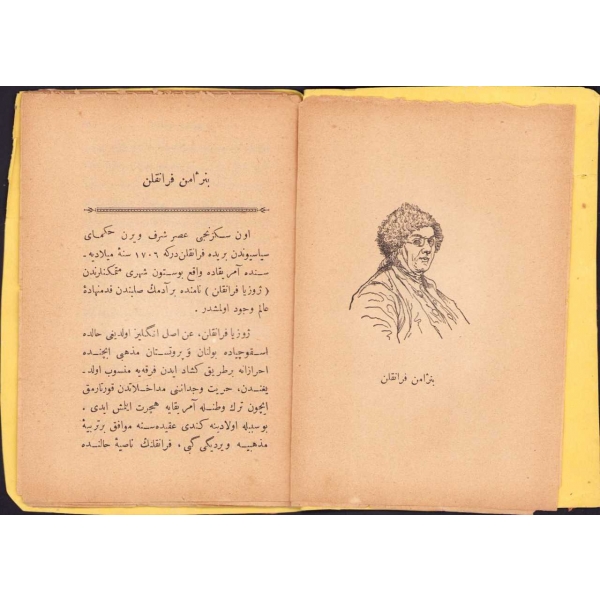 بنژامن فرانقلن
اون سكزنجی عصره شرف ویرن حكمای
سیاسیوندن بریده فرانقلن‌دركه ١٧٠٦ سنهٔ میلادیه-
سنده آمریقاده واقع بوستون شهری متمكنلرندن
(ژوزیا فرانقلن) نامنده بر آدمك صلبندن قدمنهادهٔ
عالم وجود اولمشدر.
ژوزیا فرانقلن، عن اصل انگلیز اولدیغی حالده
اسقوچیاده بولنان و پروتستان مذهبی ایچنده
احرارانه بر طریق كشاد ایدن فرقه‌یه منسوب اولد-
یغندن، حریت وجداننی مداخلاتدن قورتارمق
ایچون ترك وطنله آمریقایه هجرت ایتمش ایدی.
بوسبله اولادینه كندی عقیده‌سنه موافق بر تربیهٔ
مذهبیه ویردیگی گبی، فرانقلنك ناصیهٔ حالنده
بنژامن فرانقلن